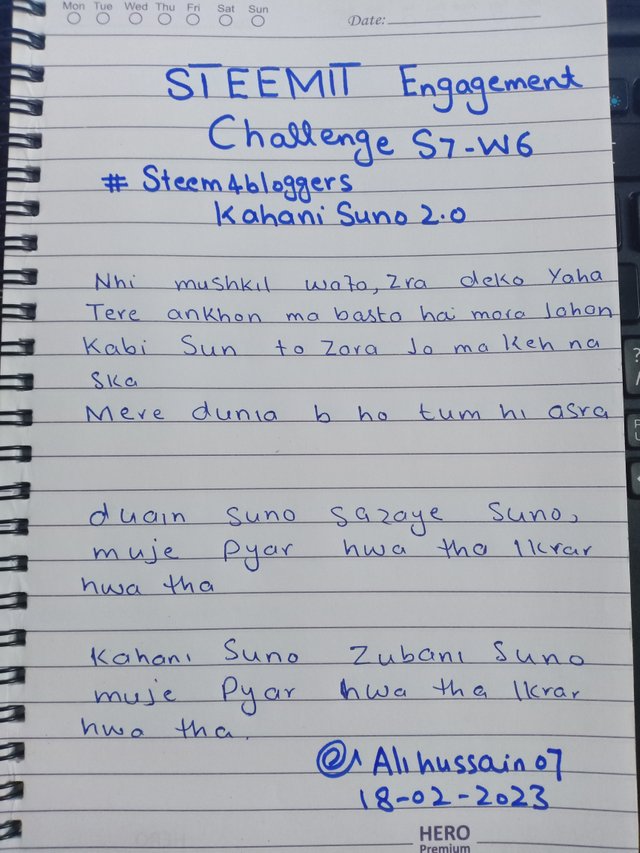 Mon Tue Wed Thu Fri Sat Sun
Date:
STEEMIT Engagement
Challenge S7-W6
# Steem4bloggers
Kahani Suno 2.0
Nhi mushkil wafa, Zra deko Yaha
Tere ankhon ma basta hai mera Jahan
Kabi Sun to Zara Jo ma keh na
Ska
Mere dunia b ho tum hi asra
duain suno sazaye suno,
muje Pyar hwa tha Ikrar
hwa tha
Kahani Suno Zubani Suno
muje Pyar hwa tha Ikrar
hwa tha.
@Alihussain07
18-02-2023
HERO
Premium